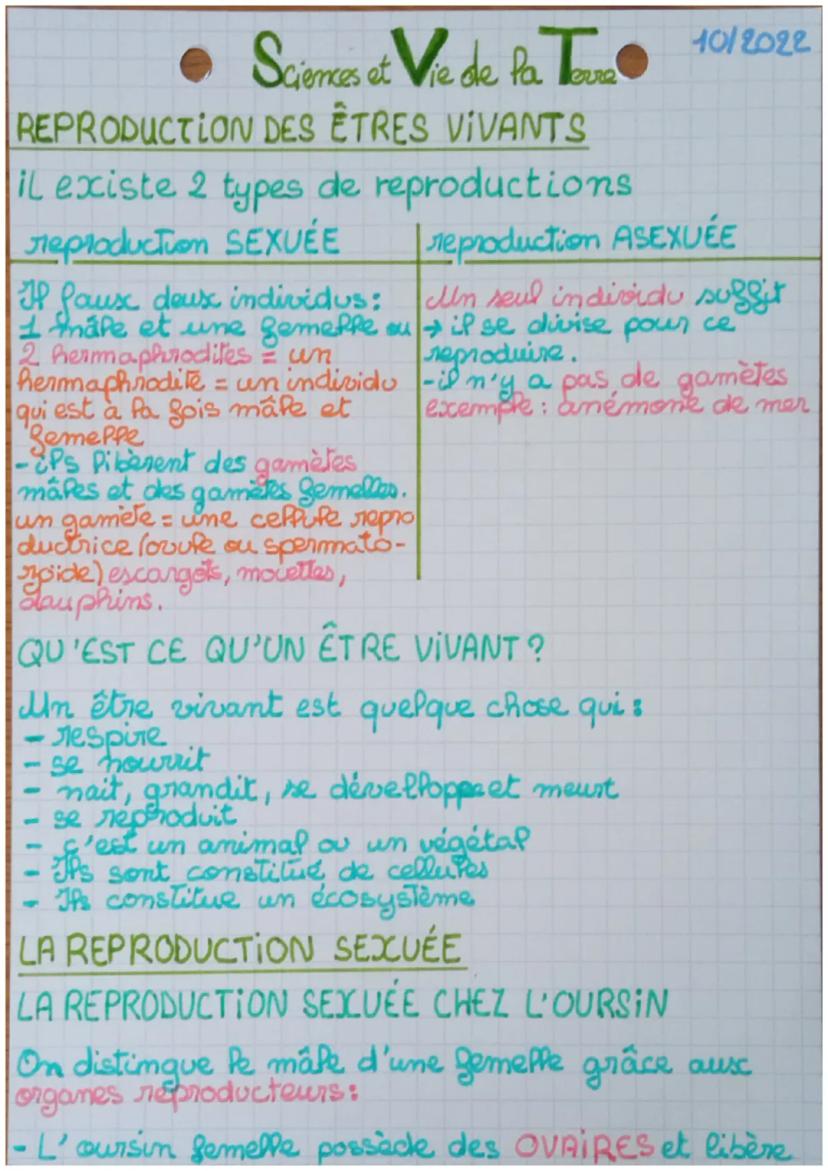 Sciences et Vie de la Terre
10/2022
REPRODUCTION DES ÊTRES ViVANTS
iL existe 2 types de reproductions
reproduction SEXUÉE
reproduction ASEXUÉE
Il faux deux individus:
1 mâle et une femelle ou
2 hermaphrodites = un
hermaphrodite = un individu
qui est à la fois mâle et
femelle
- ils libèrent des gamètes
mâles et des gamètes femelles.
un gamète = une cellule repro
ductrice (ovule ou spermato-
zoïde) escargots, mouettes,
dauphins.
Un seul individu suffit
→ il se divise pour ce
reproduire.
- il n'y a pas de gamètes
exemple : anémone de mer
QU'EST CE QU'UN ÊTRE ViVANT ?
Un être vivant est quelque chose qui :
- respire
- se nourrit
- nait, grandit, se développe et meurt
- se reproduit
- c'est un animal ou un végétal
- Ils sont constitué de cellules
- Ils constitue un écosystème
LA REPRODUCTiON SEXUÉE
LA REPRODUCTiON SEXUÉE CHEZ L'OURSiN
On distingue le mâle d'une femelle grâce aux
organes reproducteurs:
- L'oursin femelle possède des OVAIRES et libère